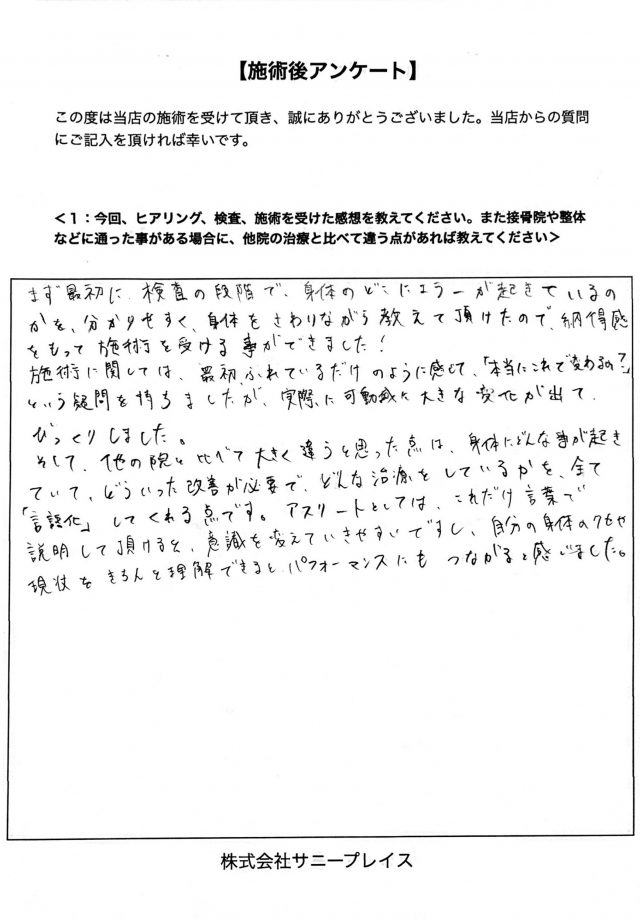 【施術後アンケート】
この度は当店の施術を受けて頂き、誠にありがとうございました。当店からの質問
にご記入を頂ければ幸いです。
＜1：今回、ヒアリング、検査、施術を受けた感想を教えてください。また接骨院や整体
などに通った事がある場合に、他院の治療と比べて違う点があれば教えてください＞
まず最初に、検査の段階で、身体のどこにエラーが起きているの
かを、分かりやすく、身体をさわりながら教えて頂けたので、納得感
をもって施術を受ける事ができました！
施術に関しては、最初ふれているだけのように感じて、「本当にこれで変わるの？」
という疑問を持ちましたが、実際に可動域に大きな変化が出て、
びっくりしました。
そして、他の院と比べて大きく違うと思った点は、身体にどんな事が起き
ていて、どういった改善が必要で、どんな治療をしているかを、全て
「言語化」してくれる点です。アスリートとしては、これだけ言葉で
説明して頂けると、意識を変えていきやすいですし、自分の身体のクセや
現状をきちんと理解できると、パフォーマンスにもつながると感じました。
株式会社サニープレイス